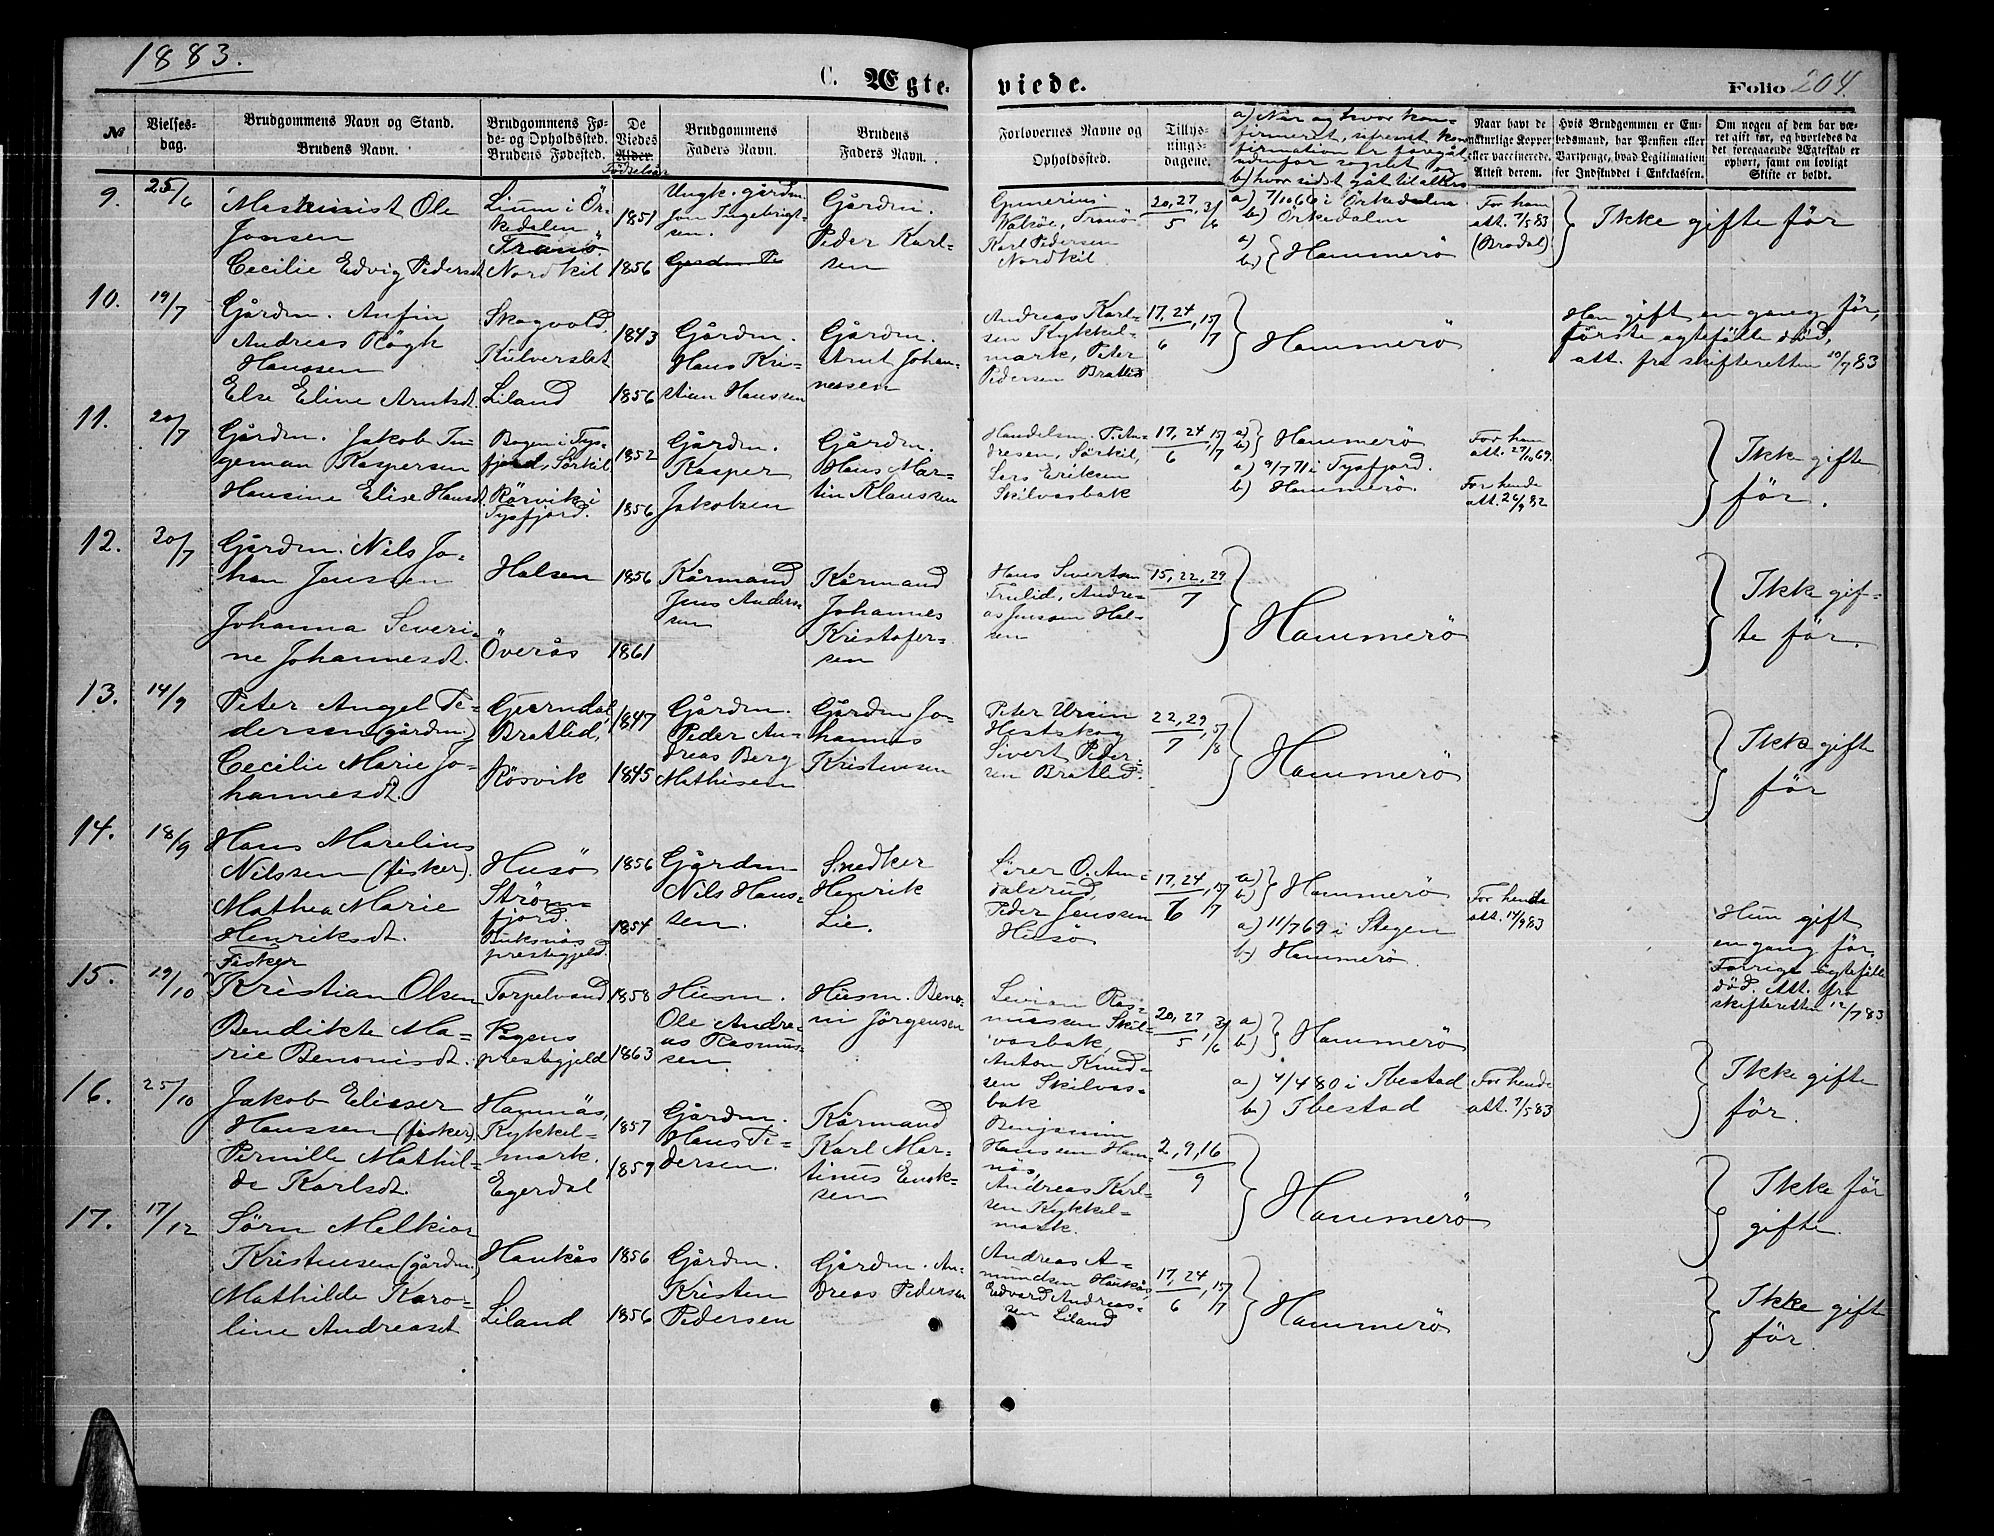 1883.
C. Ægte-
viede.
Folio 204.
№
Vielses-
dag.
Brudgommens Navn og Stand.
Brudens Navn.
Brudgommens Fø-
de- og Opholdssted.
Brudens Fødested.
De
Viedes
Alder.
Fødselsår
Brudgommens
Faders Navn.
Brudens
Faders Navn.
Forlovernes Navne og
Opholdssted.
Tillys-
nings-
dagene.
a) Når og hvor kon-
firmeret, såfremt kon-
firmation er foregåt
udenfor sognet og
b) hvor sidst gåt til alters
Naar havt de
naturlige Kopper
eller vaccinerede.
Attest derom.
Hvis Brudgommen er Em-
bedsmand, har Pension eller
Vartpenge, hvad Legitimation
for Indskuddet i Enkekassen.
Om nogen af dem har væ-
ret gift før, og hvorledes da
det foregaaende Ægteskab er
ophørt, samt om lovligt
Skifte er holdt.
9.
25/6
Maskinist Ole
Jonsen
Cecilie Edvig Pedersdt.
Lium i Ör-
kedalen
Tranö.
Nordkil
1851
1856
Ungk. gårdm.
Jon Ingebrigt-
sen.
Gårdm.
Peder Karl-
sen
Gunerius
Valsöe, Tranö
Karl Pedersen
Nordkil
20, 27/5, 3/6
a) 7/10 66 i Örkedalen
b) Örkedalen
a)
b) Hammerö
For ham
att. 7/5 83
(Brodal)
Ikke gifte för
10.
19/7
Gårdm. Anfin
Andreas Rögh
Hanssen
Else Eline Arntsdt.
Skogvold,
Kulverslet
Liland
1843
1856
Gårdm.
Hans Kri-
stian Hanssen
Gårdm.
Arnt Johan-
nessen
Andreas Karl-
sen Kykkel-
mark, Peter
Pedersen Bratlid
17, 24/6, 15/7
Hammerö
Han gift en gang för,
förste egtefælle död,
att. fra skifteretten 10/7 83
11.
20/7
Gårdm. Jakob In-
geman Kaspersen
Hansine Elise Hansdt.
Bogen i Tys-
fjord, Sörkil
Rörvik i
Tysfjord.
1852
1856
Gårdm.
Kasper
Jakobsen
Gårdm.
Hans Mar-
tin Klaussen
Handelsm. P. An-
dresen, Sörkil,
Lars Eriksen
Skilvasbak
17, 24/6, 15/7
a)
b) Hammerö
a) 9/7 71 i Tysfjord.
b) Hammerö.
For ham
att. 27/10 69.
For hende
att. 26/9 82
Ikke gifte
för.
12.
30/7
Gårdm. Nils Jo-
han Jenssen
Johanna Severi-
ne Johannesdt.
Halsen
Överås
1856
1861
Kårmand
Jens Anders-
sen
Kårmand
Johannes
Kristofer-
sen
Hans Sivertsen
Trulid, Andre-
as Jenssen Hal-
sen
15, 22, 29/7
Hammerö
Ikke gif-
te för.
13.
14/9
Peter Angel Pe-
dersen (gårdm.)
Cecilie Marie Jo-
hannesdt.
Gjerndal,
Bratlid,
Rösvik
1847
1845
Gårdm.
Peder An-
dreas Berg
Mathisen
Gårdm. Jo-
hannes
Kristensen
Peter Ursin
Hestskog
Sivert Peder-
sen Bratlid.
22, 29/7, 5/8
Hammerö
Ikke gifte
för
14.
18/9
Hans Marelius
Nilssen (fisker).
Mathea Marie
Henriksdt.
Husö
Ström-
fjord.
Buksnäs
prestegjeld.
1856
1854
Gårdm
Nils Hans-
sen.
Snedker
Henrik
Lie.
Lærer O. Am-
dalsrud,
Peder Jenssen
Husö
17, 24/6, 15/7
a)
b) Hammerö
a) 11/7 69 i Stegen
b) Hammerö.
For hende
att. 14/9 83
Hun gift
en gang för.
Forrige egtefælle
död. Att. fra
skifteretten 12/7 83
15.
29/10
Fisker
Kristian Olsen
Bendikte Ma-
rie Benonisdt.
Torpelvand
Vågens
prestegjeld
1858
1863
Husm.
Ole Andre-
as Rasmus-
sen.
Husm. Beno-
ni Jörgensen
Ras-
mussen Skil-
vasbak,
Anton Knud-
sen Skilvas-
bak
20, 27/5, 3/6
a)
b) Hammerö
a) 4/4 80 i Ibestad
b) Ibestad
For hende
att. 7/5 83
Ikke gifte
för.
16.
25/10
Jakob Elieser
Hanssen (fisker)
Pernille Mathil-
de Karlsdt.
Hamnäs,
Kykkel-
mark.
Egerdal
1857
1859
Gårdm.
Hans Pe-
dersen.
Kårmand
Karl Mar-
tinus Enok-
sen
Benjamin
Hanssen Ham-
näs,
Andreas Karl-
sen Kykkel-
mark.
2, 9, 16/9
Hammerö
Ikke för
gifte.
17.
17/12
Sörn Melkior
Kristensen (gårdm.)
Mathilde Karo-
line Andreasdt
Haukås
Liland
1856
1856
Gårdm.
Kristen
Pedersen
Gårdm. An-
dreas Pedersen
Andreas A-
mundsen Haukås,
Edvard Andreas-
sen Liland
17, 24/6, 15/7
Hammerö
Ikke gifte
för.